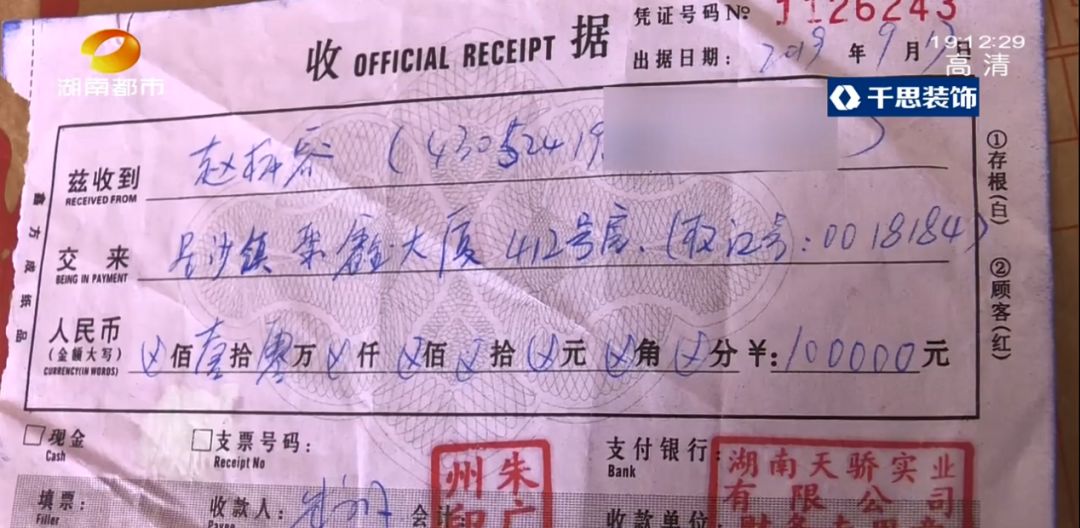 凭证号码№ J126243
湖南都市
收 OFFICIAL RECEIPT 据
出据日期: 2019 年 9 月 日
19:12:29
高清
千思装饰
兹收到 赵 容 (43052419 )
RECEIVED FROM
交来 星沙镇 聚鑫大厦 412号房.(权证号:0018184)
BEING IN PAYMENT
人民币
(金额大写)
CURRENCY(IN WORDS)
佰壹拾零万 仟 佰 拾 元 角 分 ¥:100000元
①存根(白) ②顾客(红)
鑫方成纸品
现金
Cash
支票号码:
Receipt No
支付银行
Bank
填票:
Filler
收款人:
Payee
会计
收款单位:
州朱
印广
湖南天骄实业
有限公司
财务专